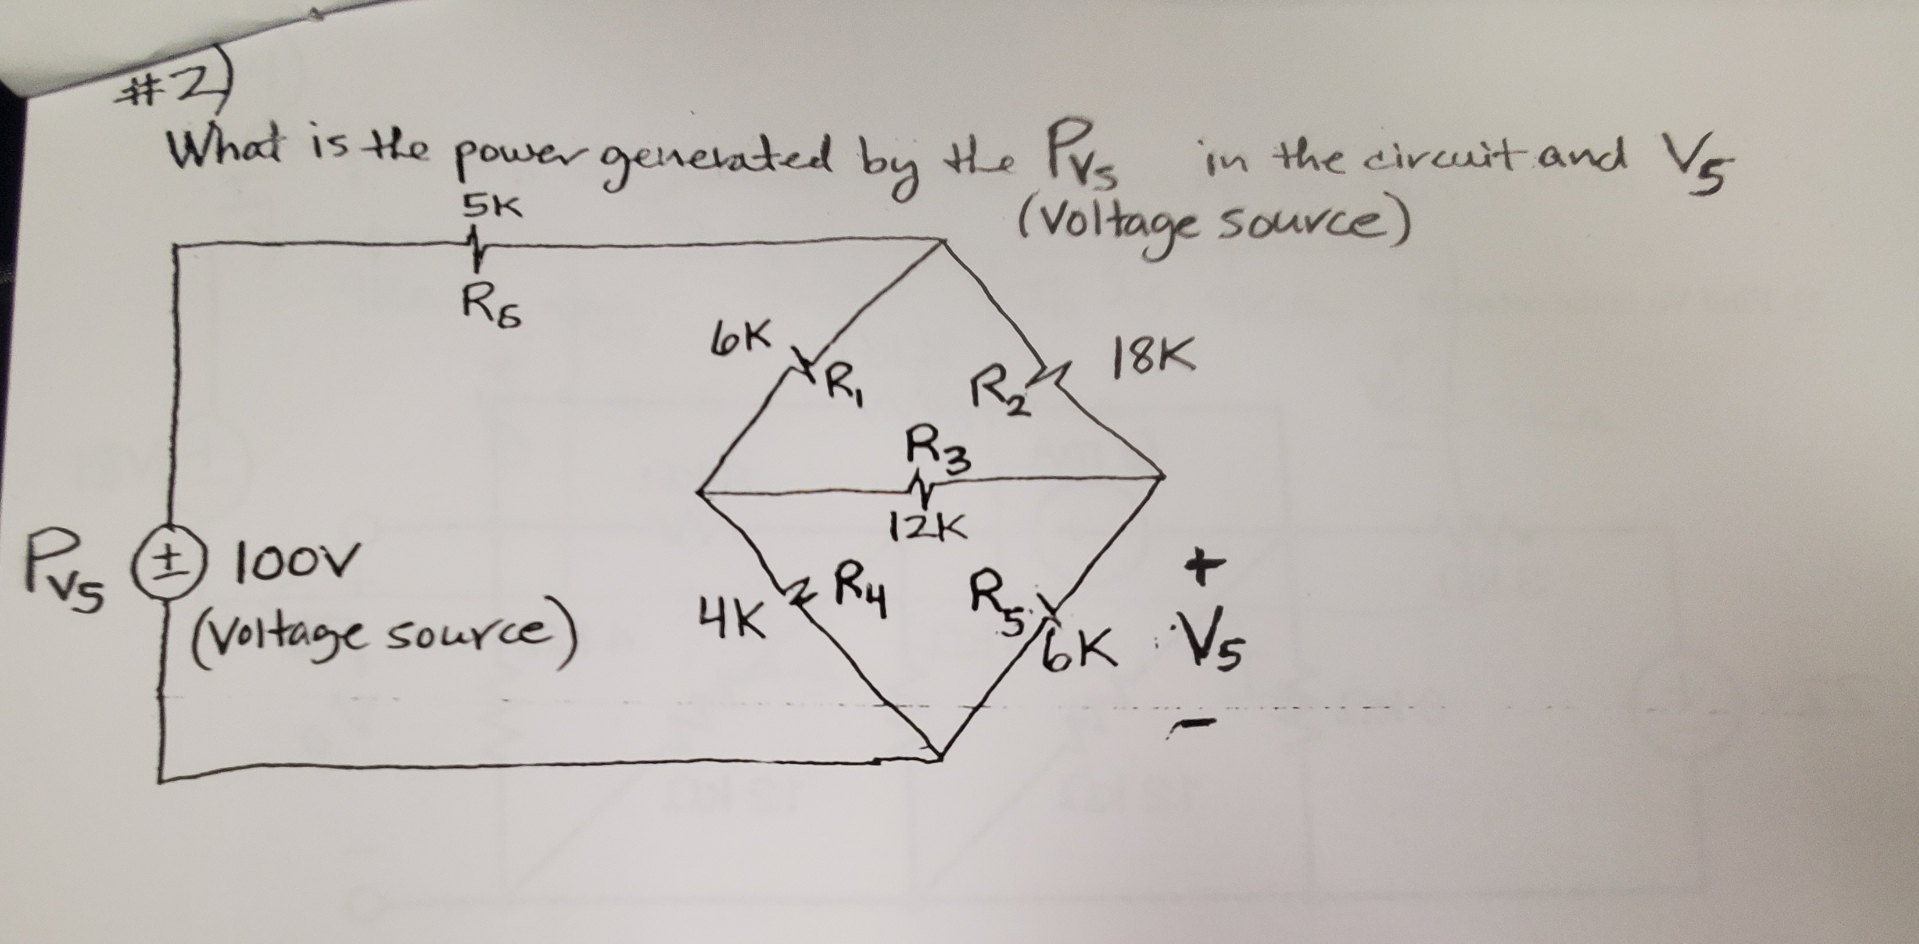 #2)
What is the power generated by the Pvs in the circuit and V5
(Voltage source)
5K
R6
6K
R1
R2
18K
R3
12K
Pvs
±
100V
(Voltage source)
4K
R4
R5
6K
+
V5
-